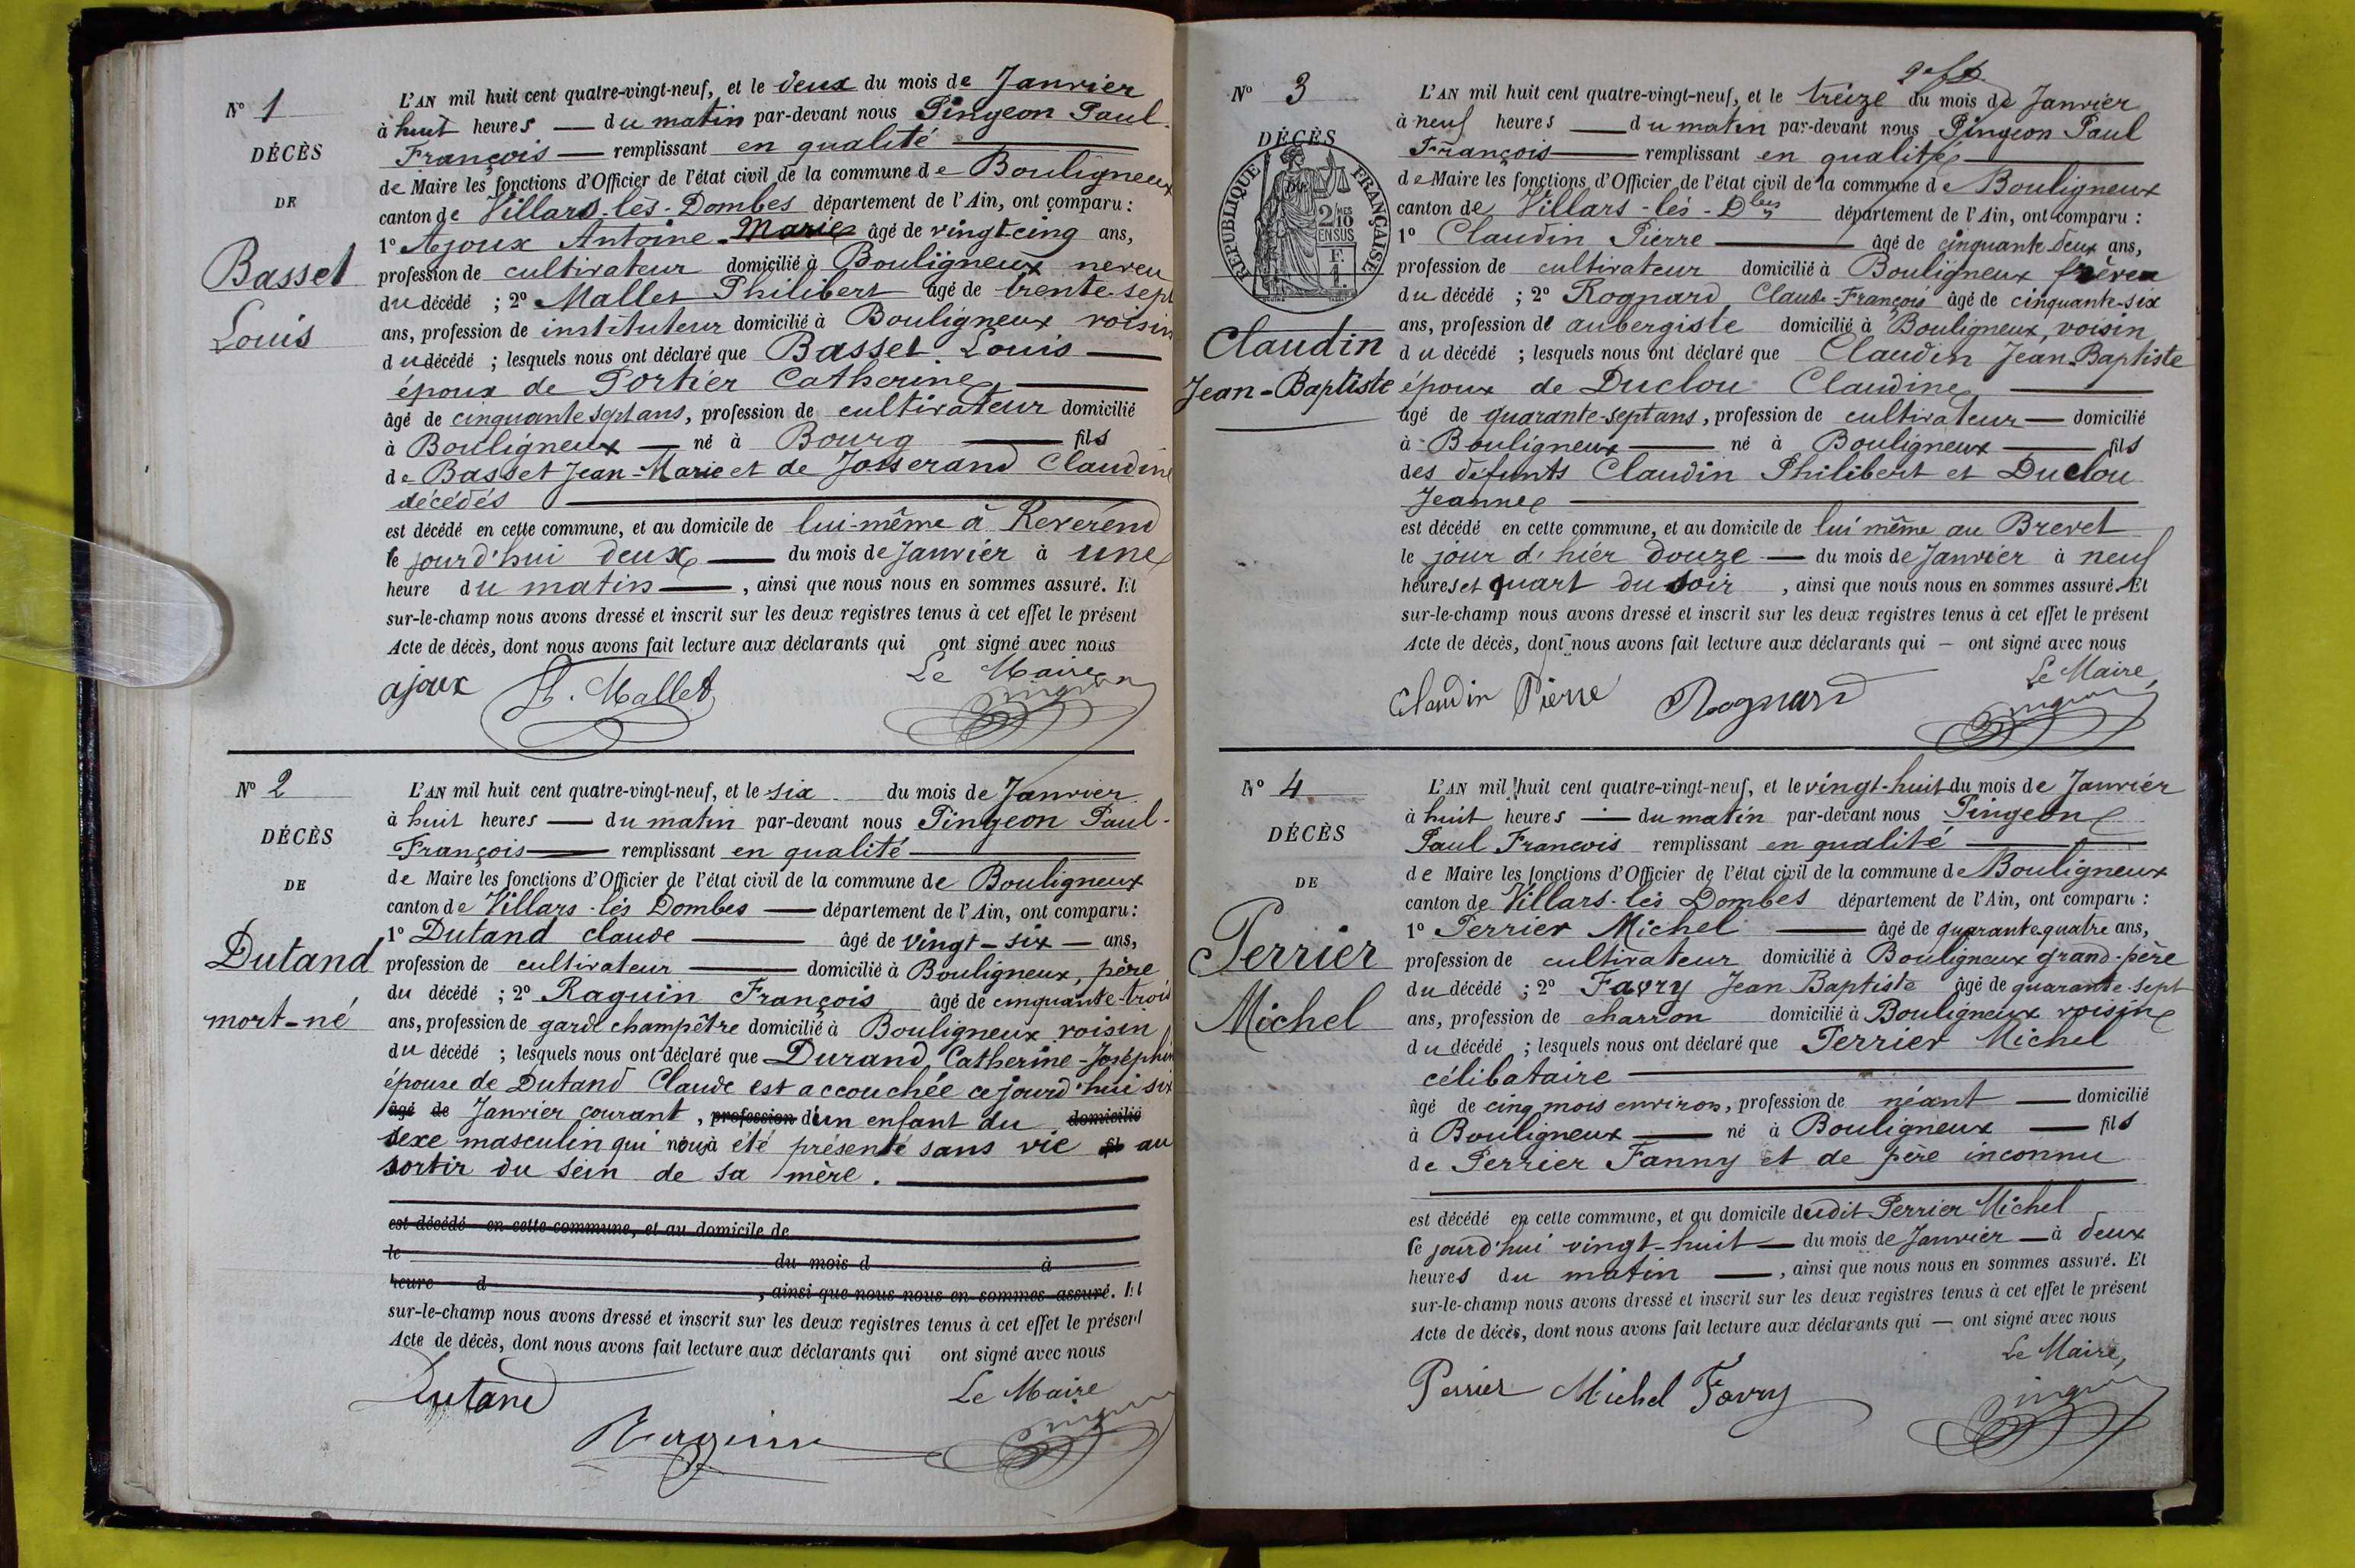 N° 1
DÉCÈS
DE
Basset
Louis
L'AN mil huit cent quatre-vingt-neuf, et le deux du mois de Janvier
à huit heures — du matin par-devant nous Pingeon Paul-
François — remplissant en qualité
de Maire les fonctions d'Officier de l'état civil de la commune de Bouligneux
canton de Villars-les-Dombes département de l'Ain, ont comparu :
1° Ajoux Antoine Marie âgé de vingt-cinq ans,
profession de cultivateur domicilié à Bouligneux neveu
du décédé ; 2° Mallet Philibert âgé de trente-sept
ans, profession de instituteur domicilié à Bouligneux voisin
du décédé ; lesquels nous ont déclaré que Basset Louis —
époux de Portier Catherine —
âgé de cinquante sept ans, profession de cultivateur domicilié
à Bouligneux — né à Bourg — fils
de Basset Jean-Marie et de Josserand Claudine
décédés
est décédé en cette commune, et au domicile de lui-même à Reverend
le jourd'hui deux — du mois de Janvier à une
heure du matin — , ainsi que nous nous en sommes assuré. Et
sur-le-champ nous avons dressé et inscrit sur les deux registres tenus à cet effet le présent
Acte de décès, dont nous avons fait lecture aux déclarants qui ont signé avec nous
Le Maire
ajoux Ph. Mallet Pingeon
N° 2
DÉCÈS
DE
Dutand
mort-né
L'AN mil huit cent quatre-vingt-neuf, et le six du mois de Janvier
à huit heures — du matin par-devant nous Pingeon Paul-
François — remplissant en qualité —
de Maire les fonctions d'Officier de l'état civil de la commune de Bouligneux
canton de Villars-lès Dombes — département de l'Ain, ont comparu :
1° Dutand claude — âgé de vingt-six — ans,
profession de cultivateur — domicilié à Bouligneux, père
du décédé ; 2° Raguin François âgé de cinquante-trois
ans, profession de garde champêtre domicilié à Bouligneux voisin
du décédé ; lesquels nous ont déclaré que Durand Catherine-Joséphin
épouse de Dutand Claude est accouchée ce jourd'hui six
âgé de Janvier courant, profession d'un enfant du domicilié
sexe masculin qui nous a été présenté sans vie au
sortir du sein de sa mère.
est décédé en cette commune, et au domicile de
le du mois d à
heure d , ainsi que nous nous en sommes assuré. Et
sur-le-champ nous avons dressé et inscrit sur les deux registres tenus à cet effet le présent
Acte de décès, dont nous avons fait lecture aux déclarants qui ont signé avec nous
Le Maire
Dutand Raguin Pingeon
N° 3
DÉCÈS
RÉPUBLIQUE FRANÇAISE
2/10 MES
EN SUS
F.
1.
Claudin
Jean-Baptiste
L'AN mil huit cent quatre-vingt-neuf, et le treize du mois de Janvier
à neuf heures — du matin par-devant nous Pingeon Paul
François — remplissant en qualité —
de Maire les fonctions d'Officier de l'état civil de la commune de Bouligneux
canton de Villars-lès-Dbes département de l'Ain, ont comparu :
1° Claudin Pierre — âgé de cinquante deux ans,
profession de cultivateur domicilié à Bouligneux frère
du décédé ; 2° Rognard Claude-François âgé de cinquante-six
ans, profession de aubergiste domicilié à Bouligneux, voisin
du décédé ; lesquels nous ont déclaré que Claudin Jean-Baptiste
époux de Duclou Claudine —
âgé de quarante-sept ans, profession de cultivateur — domicilié
à Bouligneux — né à Bouligneux — fils
des défunts Claudin Philibert et Duclou
Jeanne —
est décédé en cette commune, et au domicile de lui même au Brevet
le jour d'hier douze — du mois de Janvier à neuf
heures et quart du soir , ainsi que nous nous en sommes assuré. Et
sur-le-champ nous avons dressé et inscrit sur les deux registres tenus à cet effet le présent
Acte de décès, dont nous avons fait lecture aux déclarants qui — ont signé avec nous
Le Maire,
Claudin Pierre Rognard Pingeon
N° 4
DÉCÈS
DE
Perrier
Michel
L'AN mil huit cent quatre-vingt-neuf, et le vingt-huit du mois de Janvier
à huit heures — du matin par-devant nous Pingeon
Paul François remplissant en qualité —
de Maire les fonctions d'Officier de l'état civil de la commune de Bouligneux
canton de Villars-lès Dombes département de l'Ain, ont comparu :
1° Perrier Michel — âgé de quarante quatre ans,
profession de cultivateur domicilié à Bouligneux grand-père
du décédé ; 2° Favry Jean Baptiste âgé de quarante-sept
ans, profession de charron domicilié à Bouligneux voisin
du décédé ; lesquels nous ont déclaré que Perrier Michel
célibataire —
âgé de cinq mois environ, profession de néant — domicilié
à Bouligneux — né à Bouligneux — fils
de Perrier Fanny et de père inconnu
est décédé en cette commune, et au domicile dudit Perrier Michel
le jourd'hui vingt-huit — du mois de Janvier — à deux
heures du matin — , ainsi que nous nous en sommes assuré. Et
sur-le-champ nous avons dressé et inscrit sur les deux registres tenus à cet effet le présent
Acte de décès, dont nous avons fait lecture aux déclarants qui — ont signé avec nous
Le Maire,
Perrier Michel Favry Pingeon